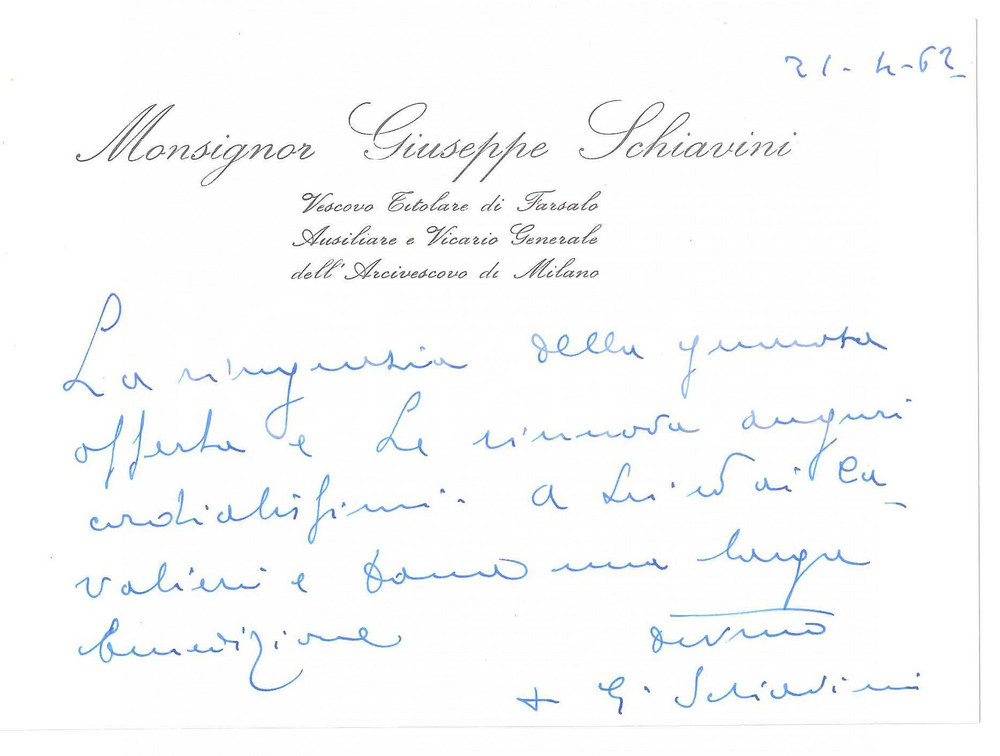 21-4-62
Monsignor Giuseppe Schiavini
Vescovo Titolare di Farsalo
Ausiliare e Vicario Generale
dell'Arcivescovo di Milano
La ringrazia della generosa
offerta e Le rinnova auguri
cordialissimi. A Lei ed ai Ca-
valieri e Dame una larga
benedizione devmo
+ G. Schiavini